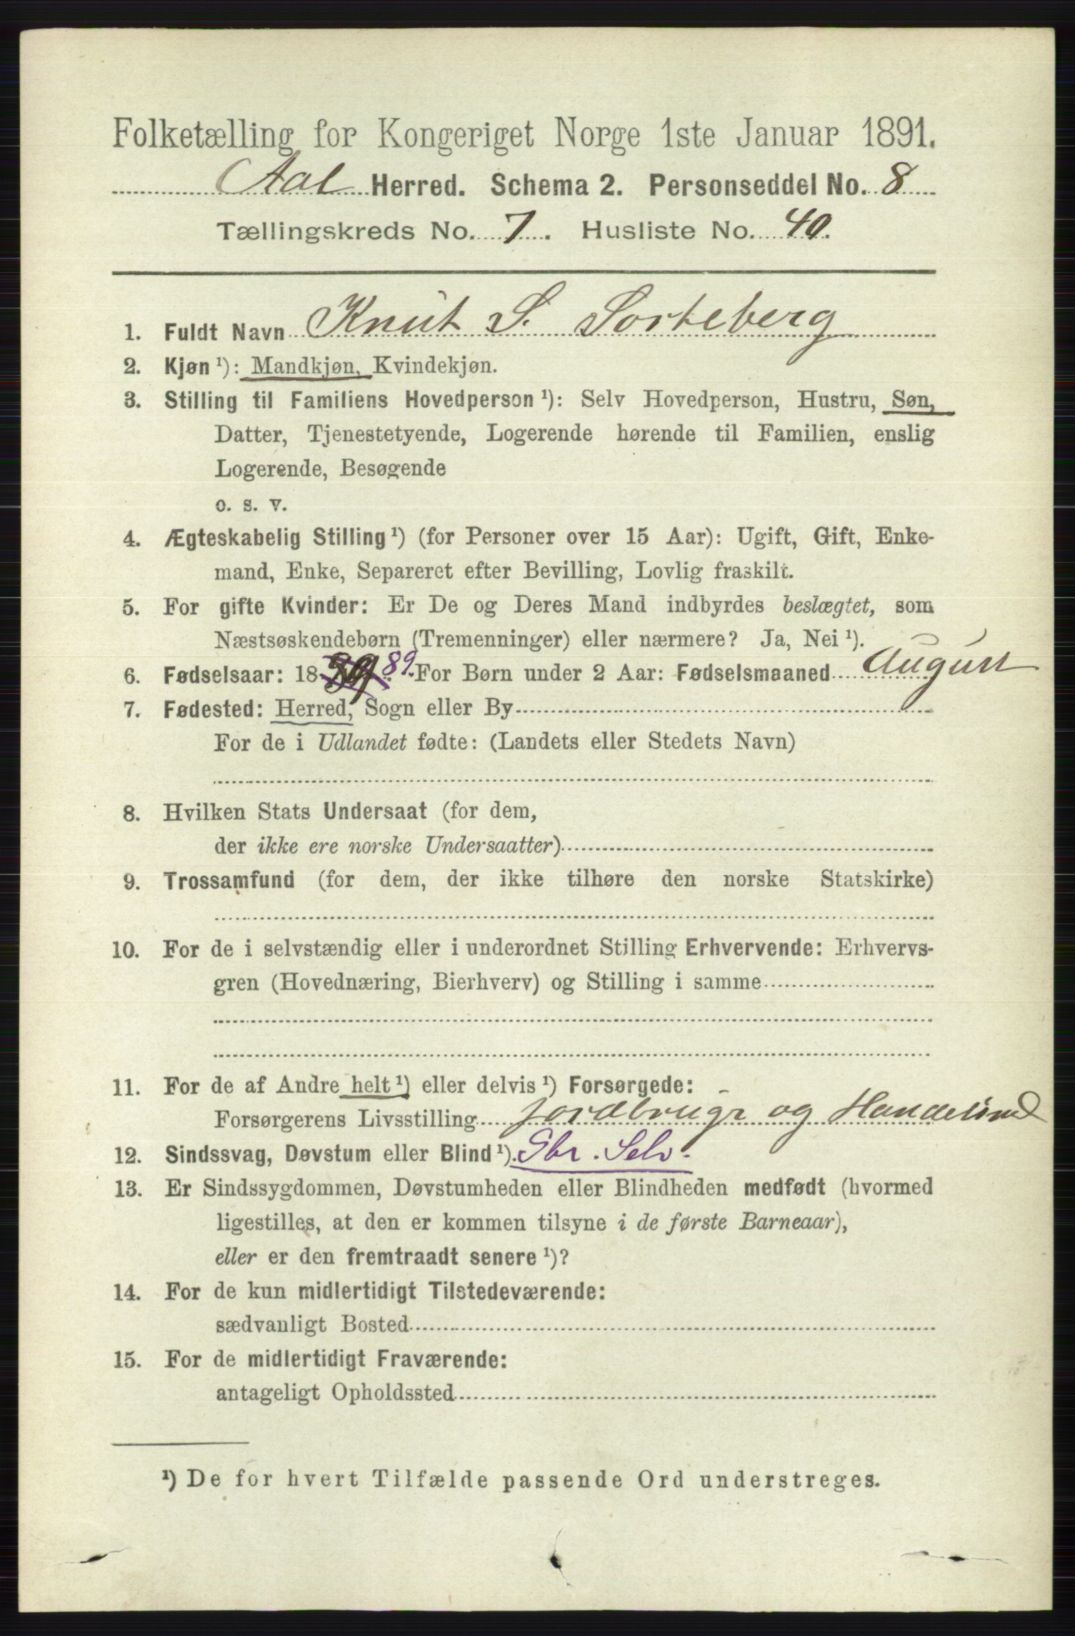 Folketælling for Kongeriget Norge 1ste Januar 1891.
Aal Herred. Schema 2. Personseddel No. 8
Tællingskreds No. 7. Husliste No. 40.
1. Fuldt Navn Knut S. Sorteberg
2. Kjøn ¹): Mandkjøn, Kvindekjøn.
3. Stilling til Familiens Hovedperson ¹): Selv Hovedperson, Hustru, Søn,
Datter, Tjenestetyende, Logerende hørende til Familien, enslig
Logerende, Besøgende
o. s. v.
4. Ægteskabelig Stilling ¹) (for Personer over 15 Aar): Ugift, Gift, Enke-
mand, Enke, Separeret efter Bevilling, Lovlig fraskilt.
5. For gifte Kvinder: Er De og Deres Mand indbyrdes beslægtet, som
Næstsøskendebørn (Tremenninger) eller nærmere? Ja, Nei ¹).
6. Fødselsaar: 18 89. For Børn under 2 Aar: Fødselsmaaned August
7. Fødested: Herred, Sogn eller By
For de i Udlandet fødte: (Landets eller Stedets Navn)
8. Hvilken Stats Undersaat (for dem,
der ikke ere norske Undersaatter)
9. Trossamfund (for dem, der ikke tilhøre den norske Statskirke)
10. For de i selvstændig eller i underordnet Stilling Erhvervende: Erhvervs-
gren (Hovednæring, Bierhverv) og Stilling i samme
11. For de af Andre helt ¹) eller delvis ¹) Forsørgede:
Forsørgerens Livsstilling jordbrugr og Handelsmd
12. Sindssvag, Døvstum eller Blind ¹). Gbr. Selv.
13. Er Sindssygdommen, Døvstumheden eller Blindheden medfødt (hvormed
ligestilles, at den er kommen tilsyne i de første Barneaar),
eller er den fremtraadt senere ¹)?
14. For de kun midlertidigt Tilstedeværende:
sædvanligt Bosted
15. For de midlertidigt Fraværende:
antageligt Opholdssted
¹) De for hvert Tilfælde passende Ord understreges.